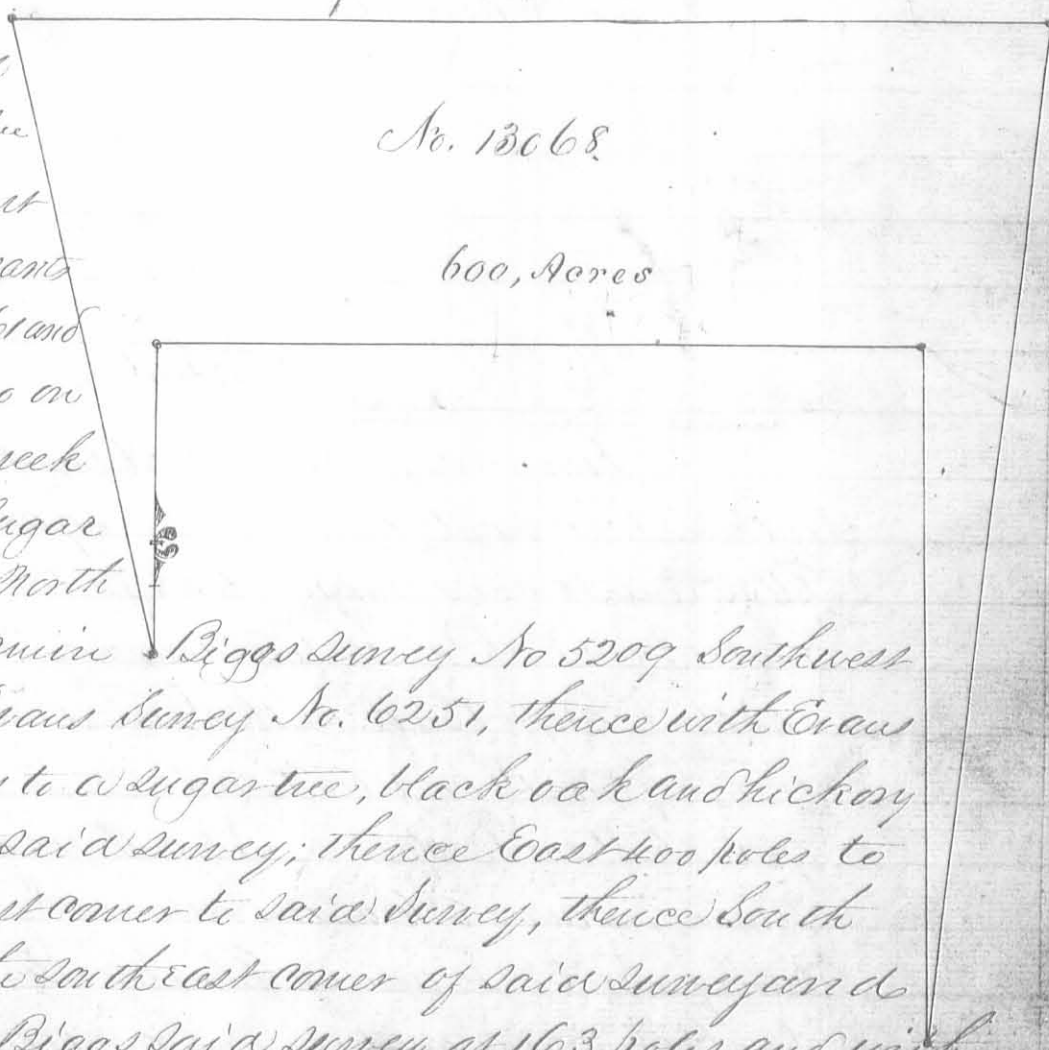 No. 13068
600, Acres
and
on
North
Biggs Survey No 5209 Southwest
Evans Survey No. 6251, thence with Evans
to a sugartree, black oak and hickory
said survey; thence East 400 poles to
corner to said Survey, thence South
southeast corner of said survey and
Biggs said survey at 163 poles and with